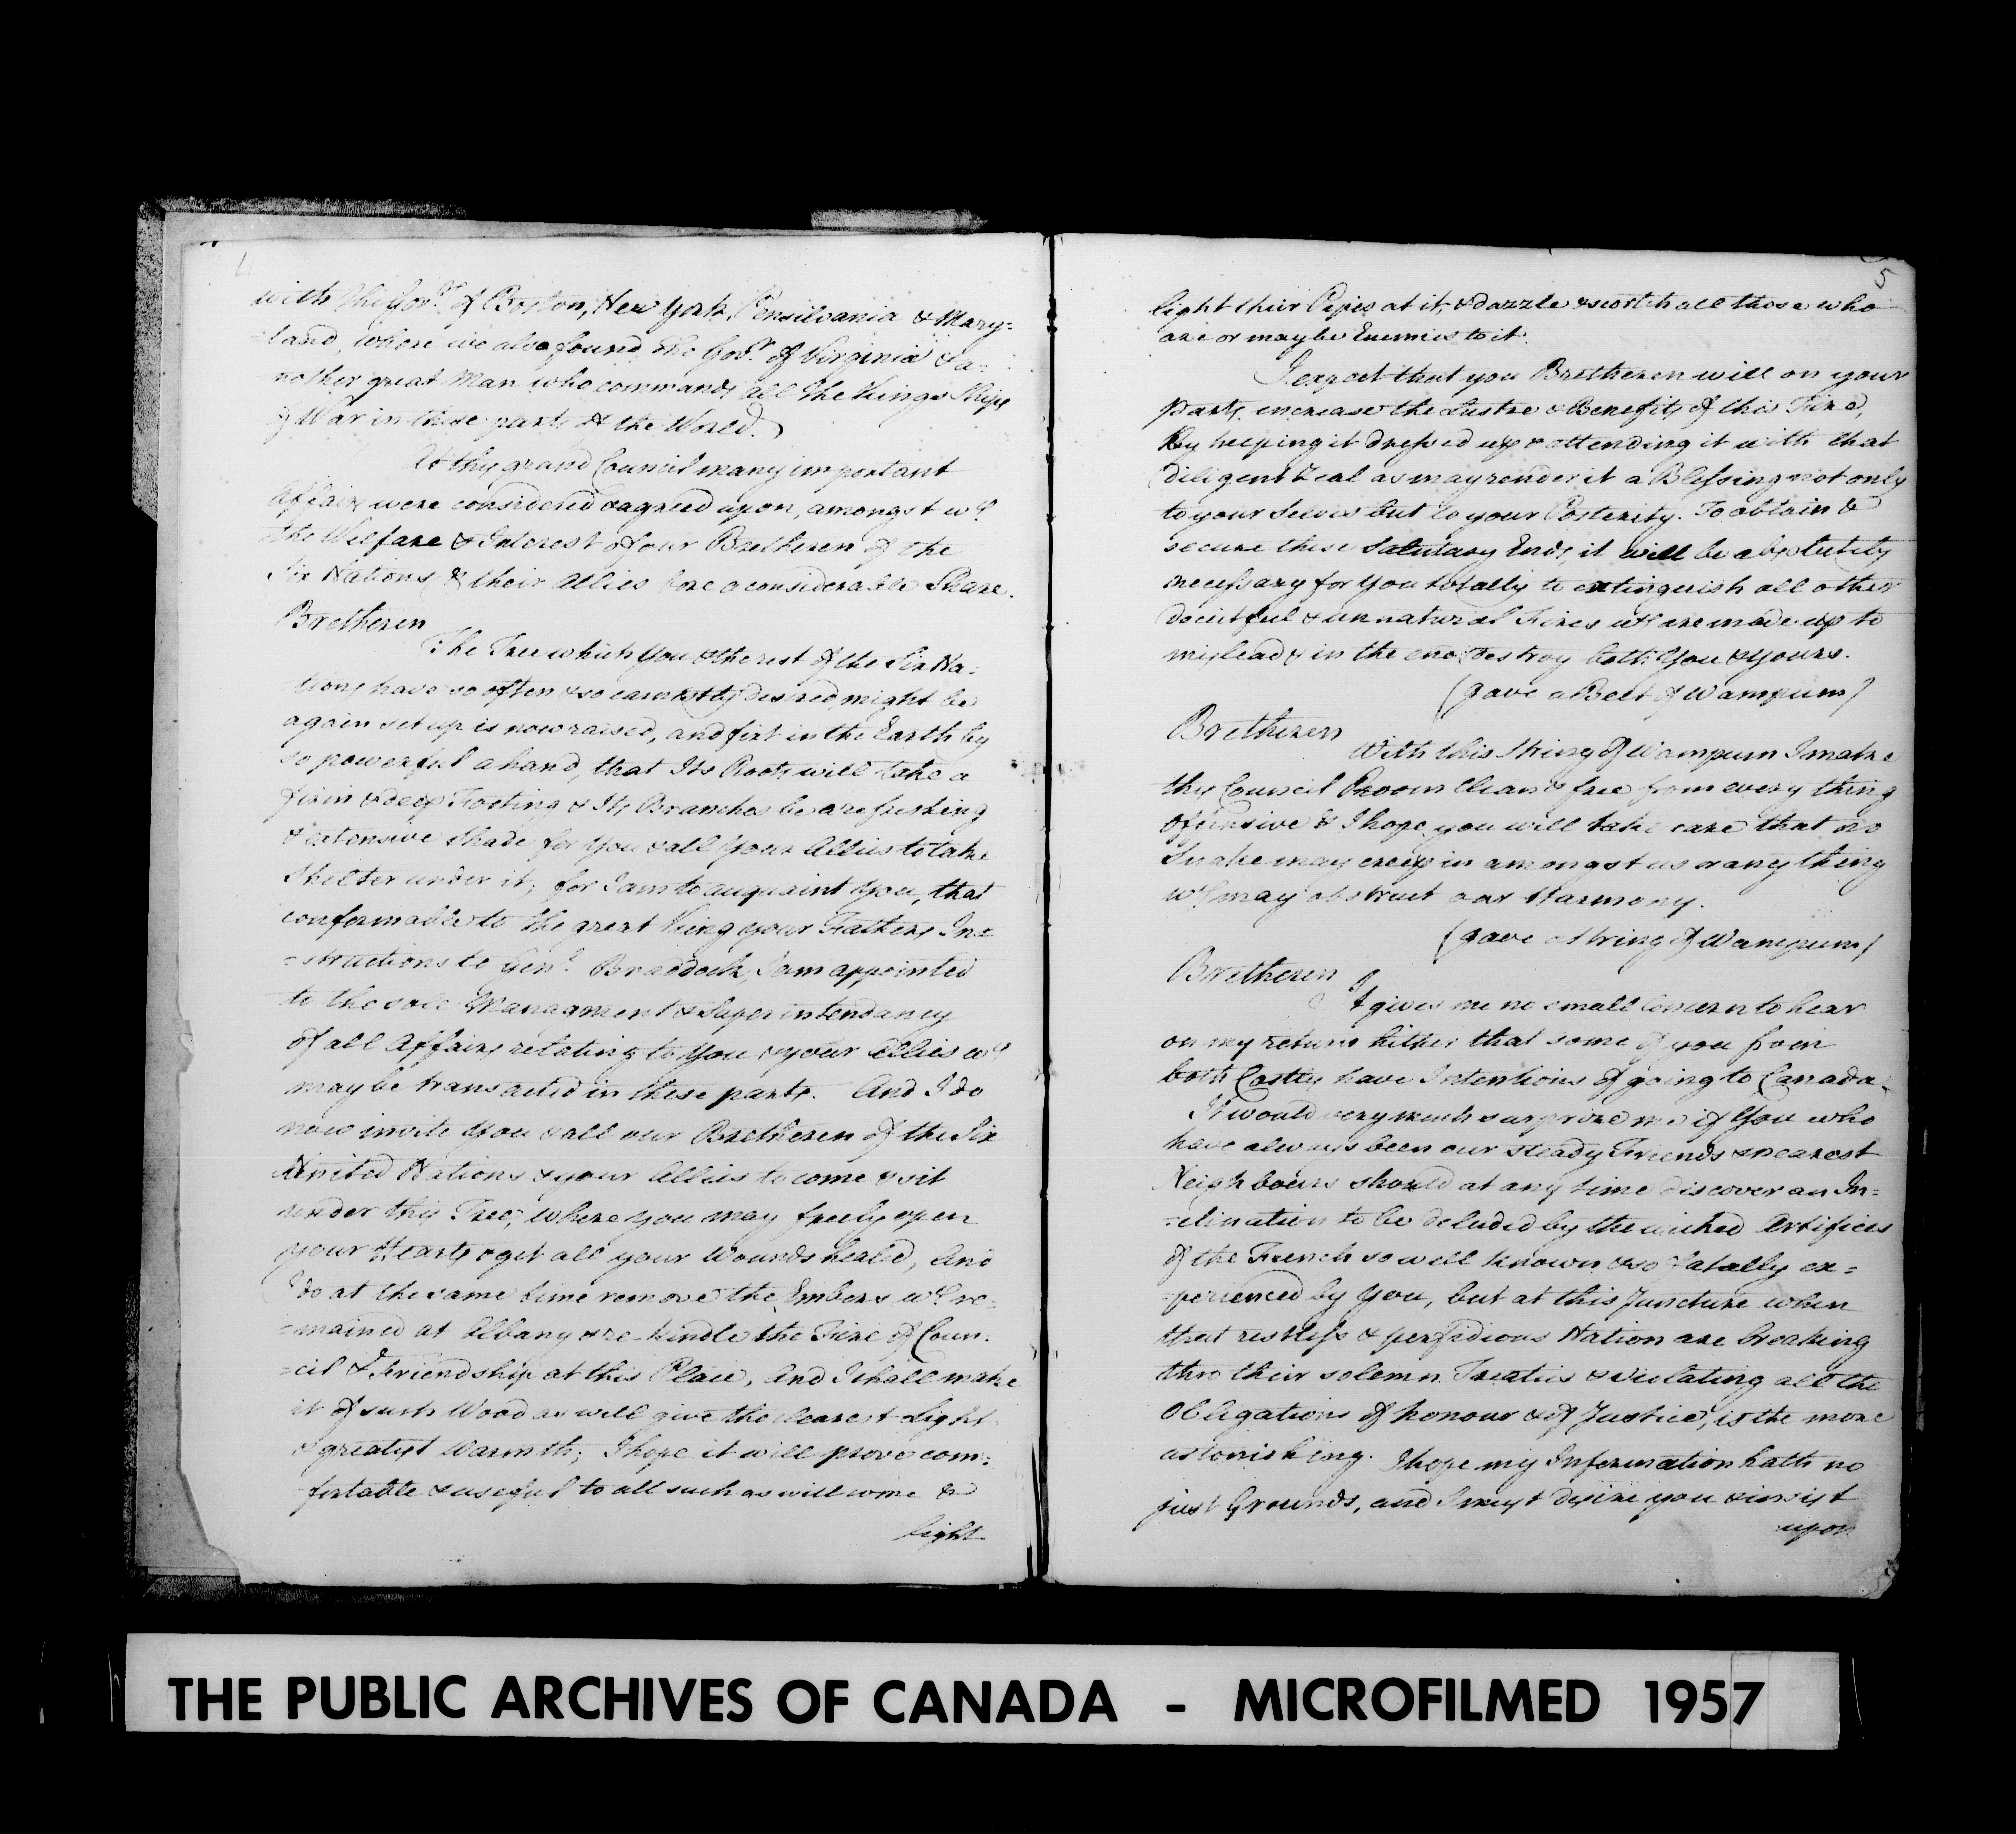 4
with the Govrs. of Boston, New York, Pensilvania & Mary=
=land, where we also found the Govr. of Virginia & a=
nother great Man who commands all the Kings Ships
of War in these parts of the World.
At this grand Council many important
Affairs were considered & agreed upon, amongst wh.
the Welfare & Interest of our Bretheren of the
Six Nations & their Allies bore a considerable Share.
Bretheren
The Tree which You & the rest of the Six Na=
tions have so often & so earnestly desired might be
again set up is now raised, and fixt in the Earth by
so powerful a hand, that Its Roots will take a
firm & deep Footing & Its Branches be a refreshing
& extensive Shade for You & all Your Allies to take
Shelter under it; for I am to acquaint You, that
conformable to the great King your Fathers In=
=structions to Genl. Braddock, I am appointed
to the sole Managment & Superintendancy
of all Affairs relating to You & your Allies wh.
may be transacted in these parts. And I do
now invite You & all our Bretheren of the Six
United Nations & your Allies to come & sit
under this Tree, where you may freely open
your Hearts & get all your Wounds healed, And
I do at the same time remove the Embers wh. re=
=mained at Albany & re-kindle the Fire of Coun=
=cil & Friendship at this Place, And I shall make
it of such Wood as will give the clearest Light
& greatest Warmth; I hope it will prove com=
fortable & useful to all such as will come &
light
5
light their Pipes at it, & dazzle & scortch all those who
are or may be Enemies to it.
I expect that you Bretheren will on your
parts increase the Lustre & Benefits of this Fire,
By keeping it dressed up & attending it with that
diligent Zeal as may render it a Blessing not only
to your Selves but to your Posterity. To obtain &
secure these Salutary Ends, it will be absolutely
necessary for You totally to extinguish all other
deceitful & unnatural Fires wh. are made up to
mislead & in the end destroy both You & Yours.
(gave a Belt of Wampum)
Bretheren
With this String of Wampum I make
this Council Room clean & free from every thing
offensive & I hope you will take care that no
Snake may creep in amongst us or any thing
wh. may obstruct our Harmony.
(gave a String of Wampum)
Bretheren
It gives me no small Concern to hear
on my return hither that some of you from
both Castles have Intentions of going to Canada.
It would very much surprize me if You who
have always been our steady Friends & nearest
Neighbours should at any time discover an In=
=clination to be deluded by the wicked Artifices
of the French so well known & so fatally ex=
=perienced by You, but at this Juncture when
that restless & perfidious Nation are breaking
thro their solemn Treaties & violating all the
Obligations of honour & of Justice, is the more
astonishing. I hope my Information hath no
just Grounds, and I must desire you & insist
upon
THE PUBLIC ARCHIVES OF CANADA - MICROFILMED 1957